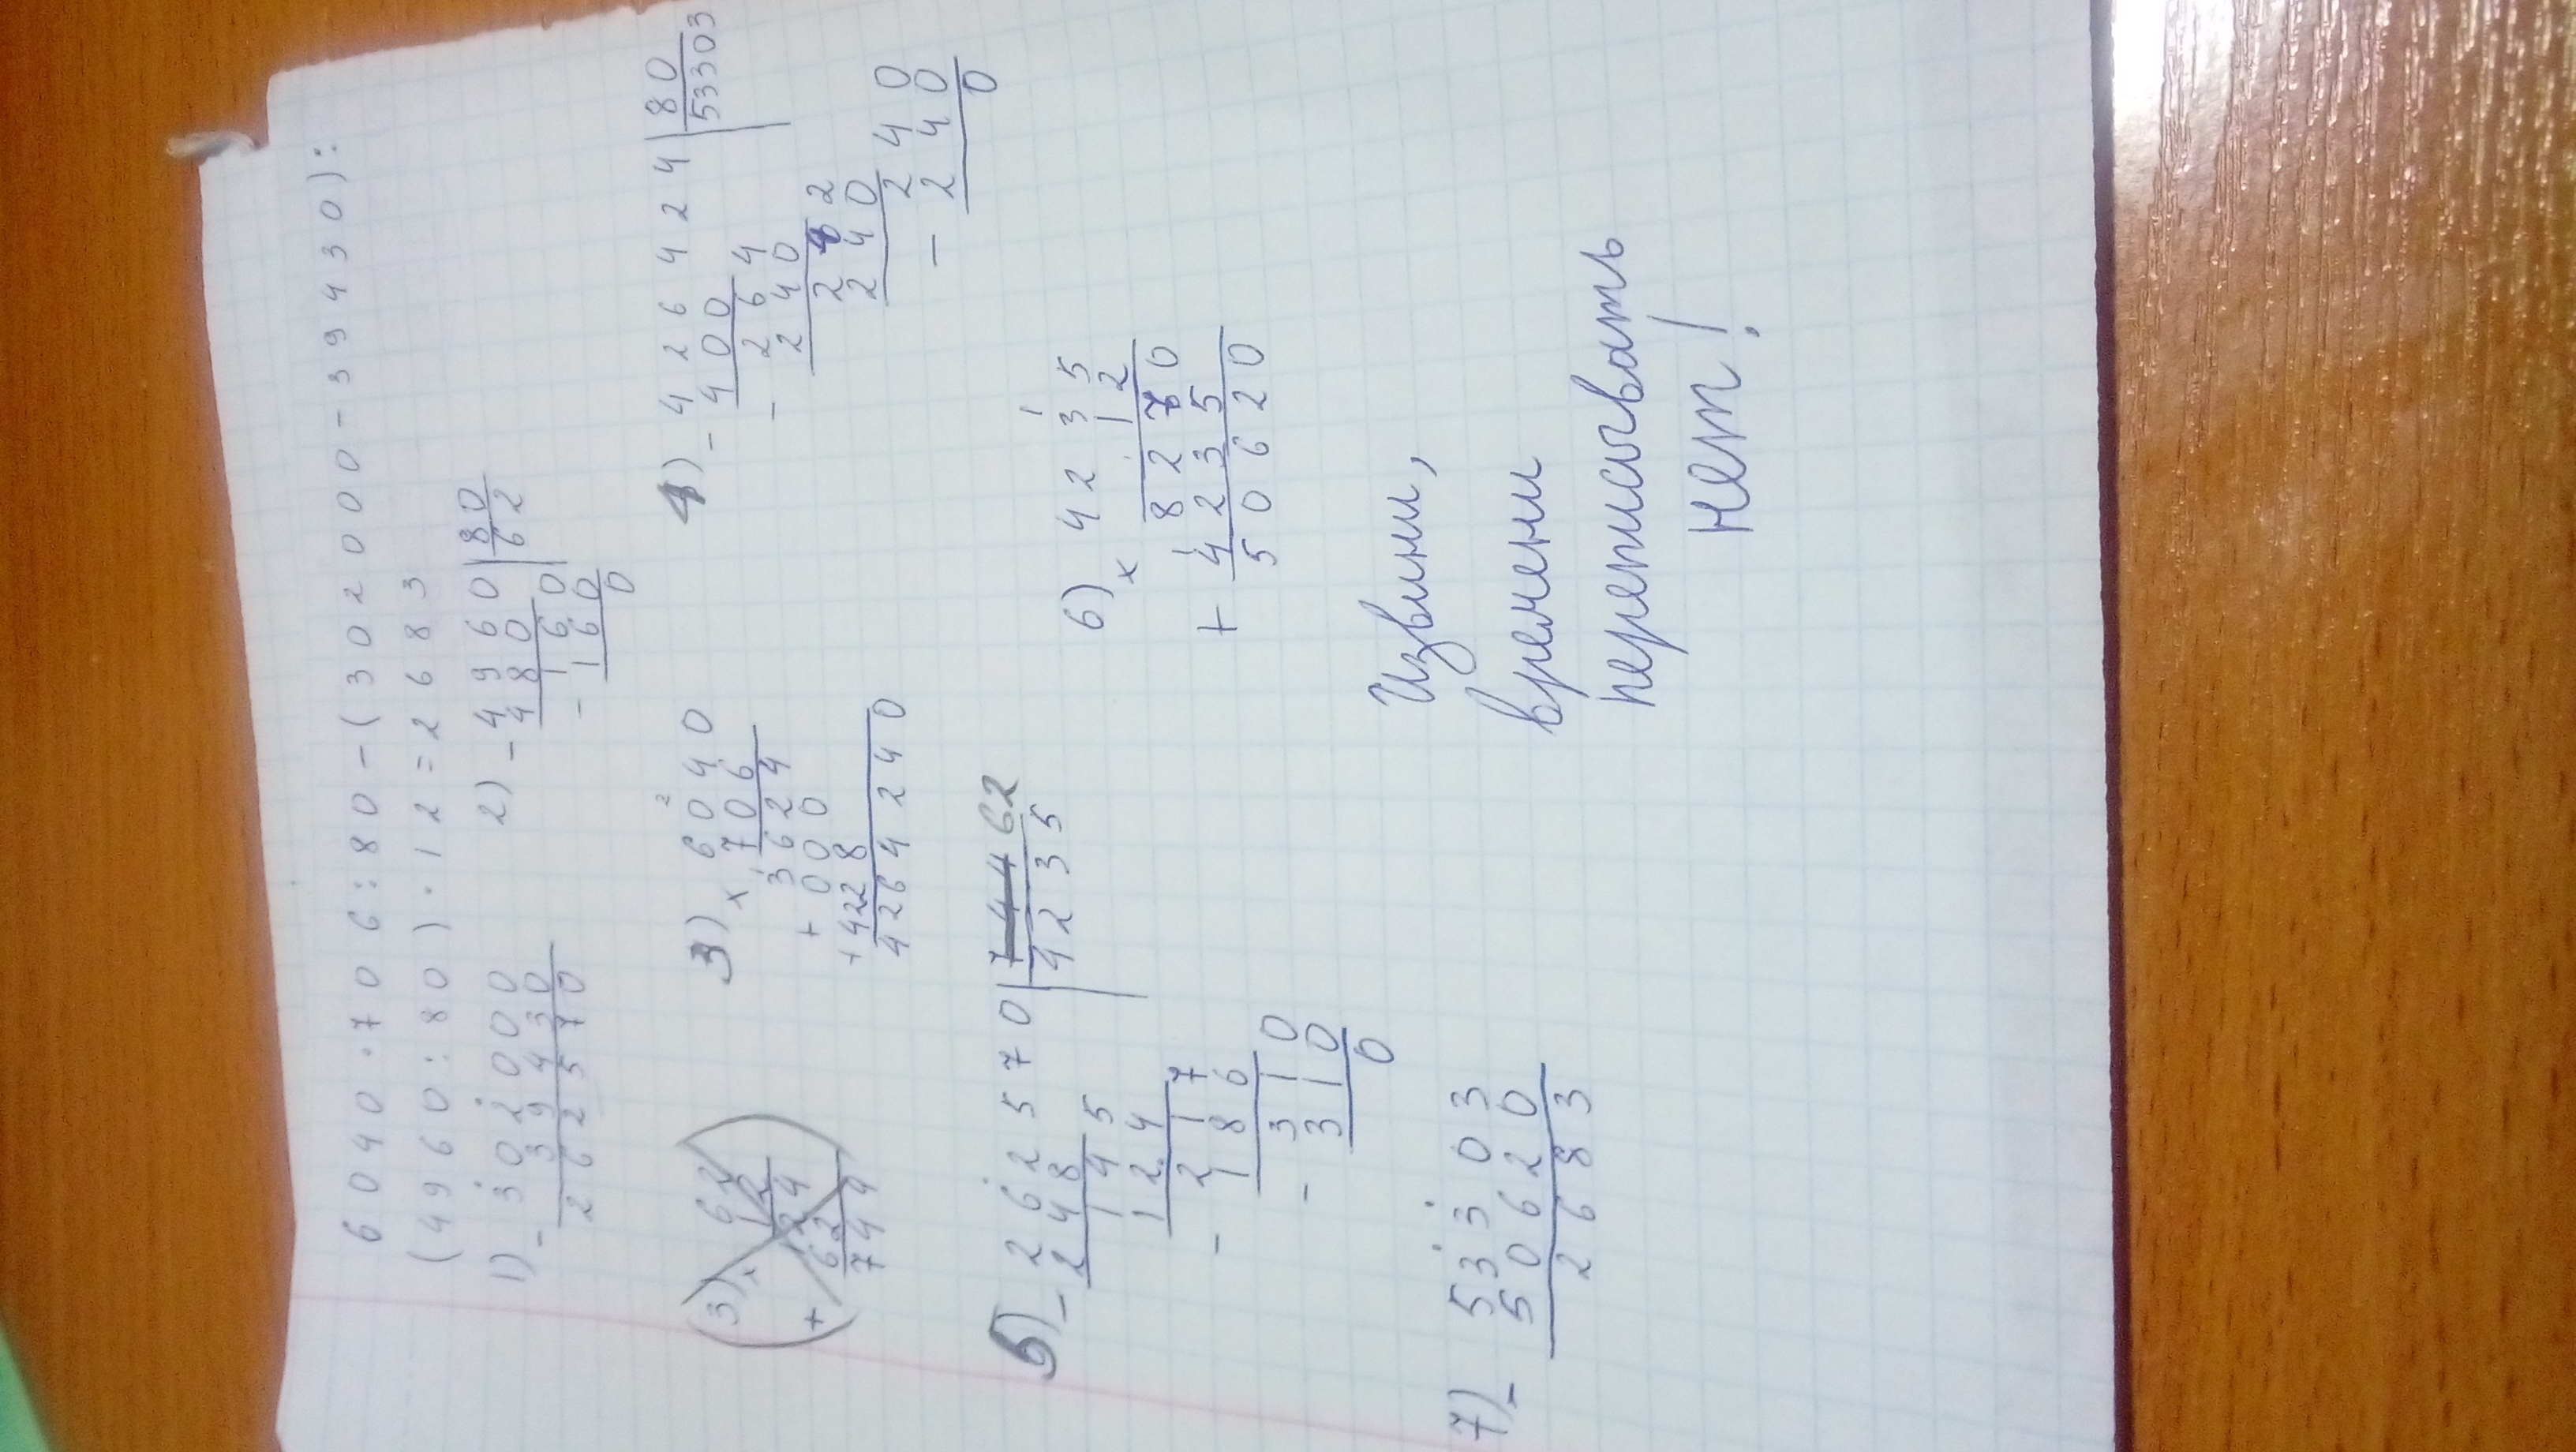 6040·706:80-(302000-394430):
(4960:80)·12=2683
1) -302000
394430
262570
2) -4960|80
480 62
160
-160
0
(3) × 62
12
124
+62
744)
3) × 6040
706
3624
+0000
+4228
4264240
4) -426424|80
400 53303
-264
240
282
240
240
-240
0
5) -262570|744 62
248 4235
145
124
217
-186
310
-310
0
6) × 4235
12
8270
+4235
50620
7) -53303
50620
2683
Извини,
времени
переписывать
нет!